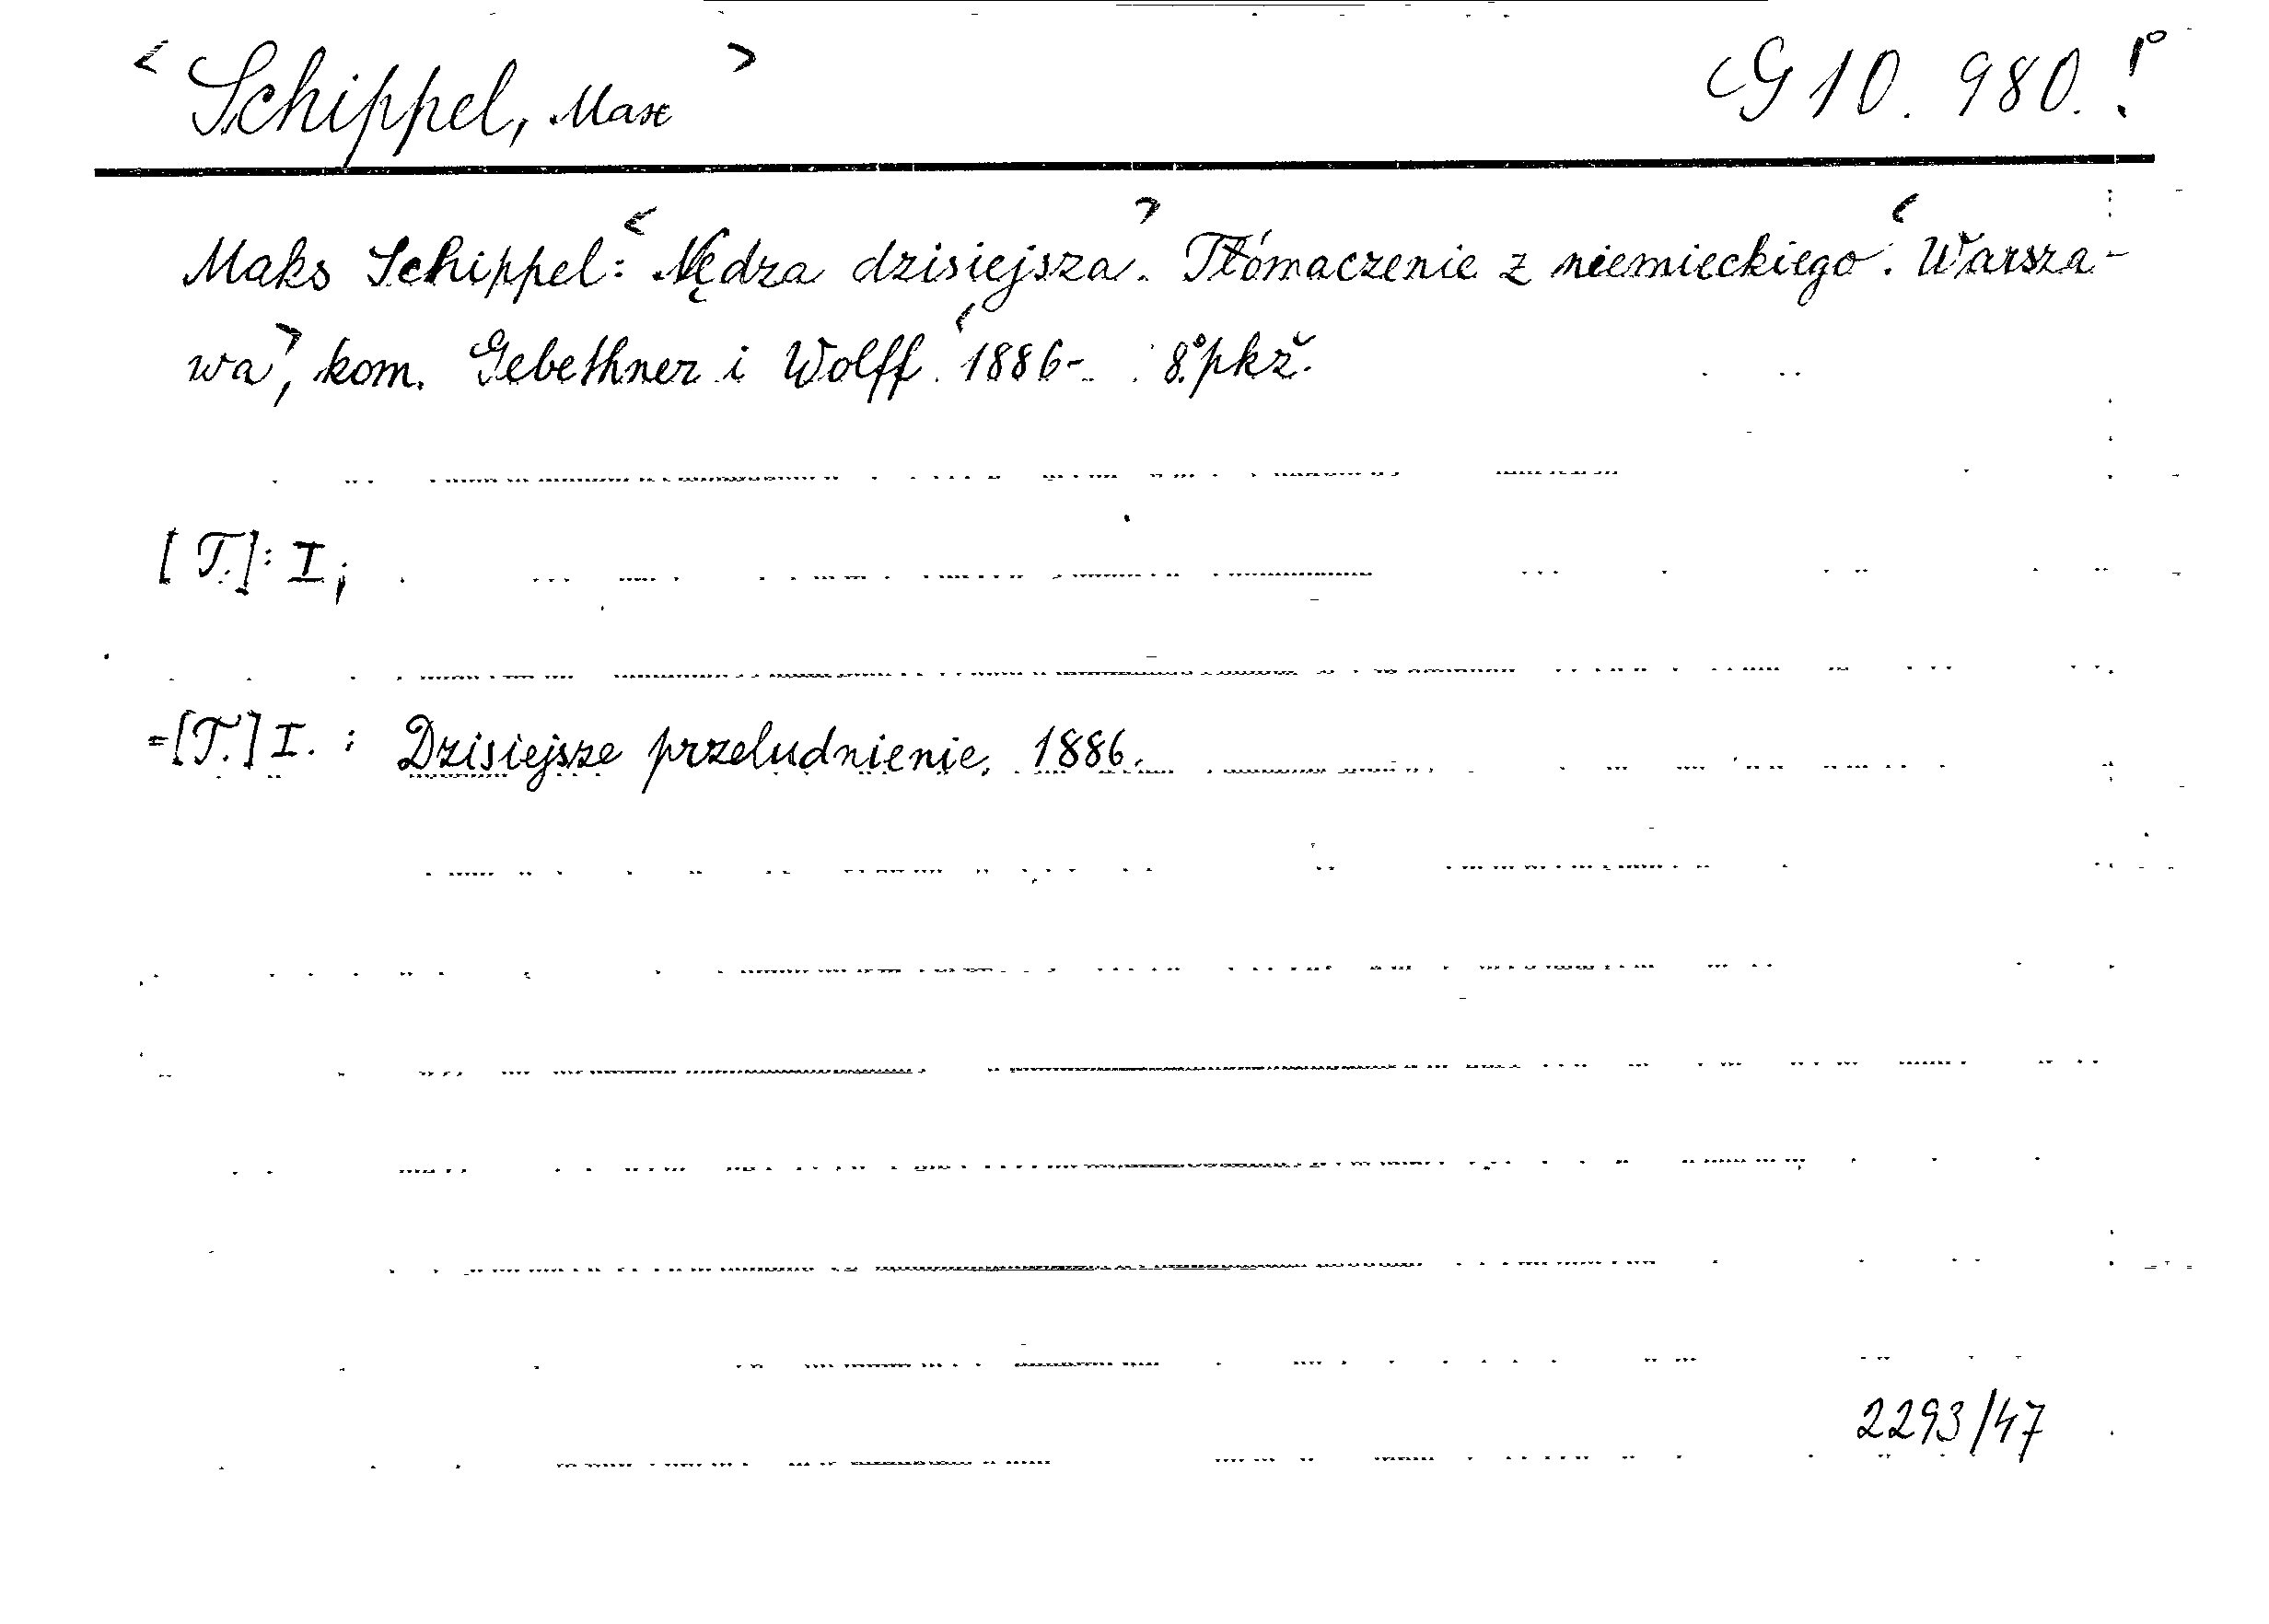 < Schippel, Max > G 10. 980. !°
Maks Schippel: < Nędza dzisiejsza >. Tłómaczenie z niemieckiego. < Warsza-
wa >, kom. Gebethner i Wolff < 1886-. 8.° pkž.
[T.]: I;
=[T.] I. : Dzisiejsze przeludnienie. 1886.
2293/47